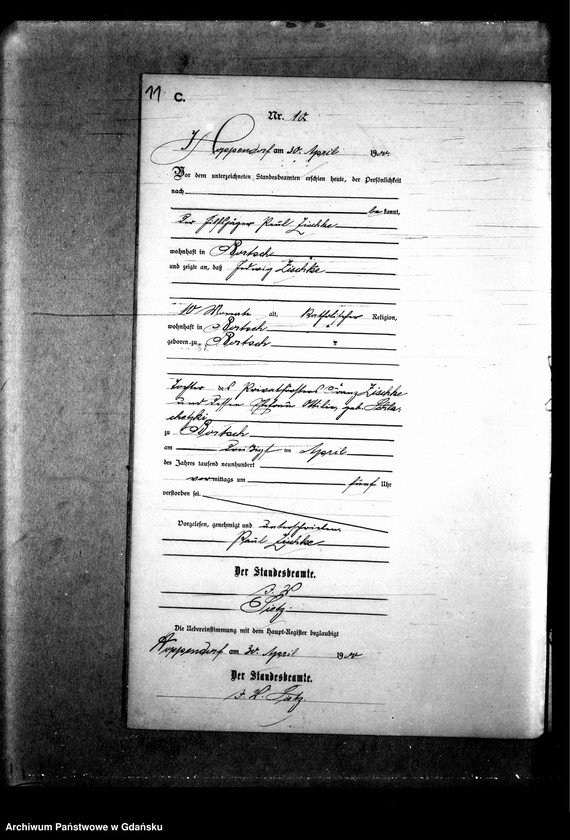 11 C.
Nr. 10
Hoppendorf am 30. April 1900.
Vor dem unterzeichneten Standesbeamten erschien heute, der Persönlichkeit
nach
bekannt,
der Hilfsjäger Paul Zischke
wohnhaft in Bortsch
und zeigte an, daß Hedwig Zischke
10 Monate alt, katholischer Religion,
wohnhaft in Bortsch
geboren zu Bortsch
Tochter des Privatförsters Franz Zischke
und dessen Ehefrau Ottilie, geb.
zu Bortsch
am dreißigsten April
des Jahres tausend neunhundert
vormittags um fünf Uhr
verstorben sei.
Vorgelesen, genehmigt und unterschrieben
Paul Zischke
Der Standesbeamte.
Die Uebereinstimmung mit dem Haupt-Register beglaubigt
Hoppendorf am 30. April 1900
Der Standesbeamte.
Archiwum Państwowe w Gdańsku